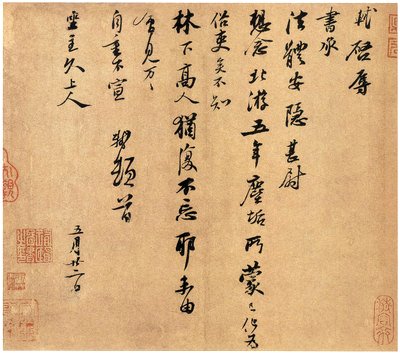 軾啓辱
書承
法體安隱甚尉
想念北游五年塵垢所蒙已化為
俗吏矣不知
林下高人猶復不忘耶未由
會見萬〻
自重不宣 軾頓首
坐主久上人
五月廿二日